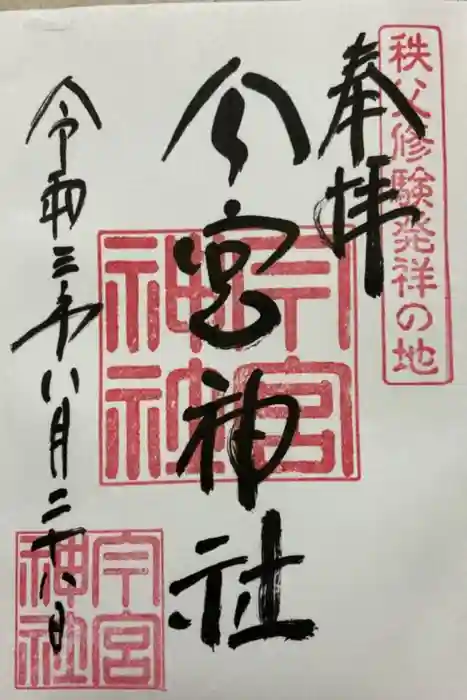 秩父修験発祥の地
奉拝
今宮神社
今宮
神社
令和三年八月二十八日
今宮
神社